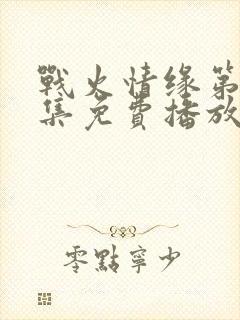 戰火情缘第
集免費播放
零點寧少